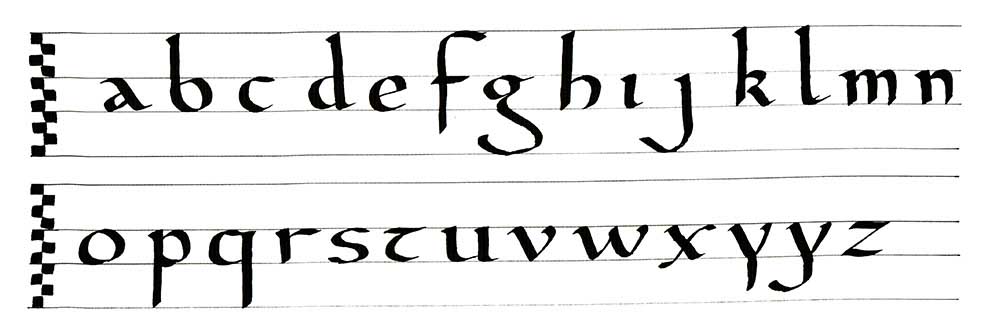 a b c d e f g h ı ȷ k l m n
o p q r s t u v w x y y z